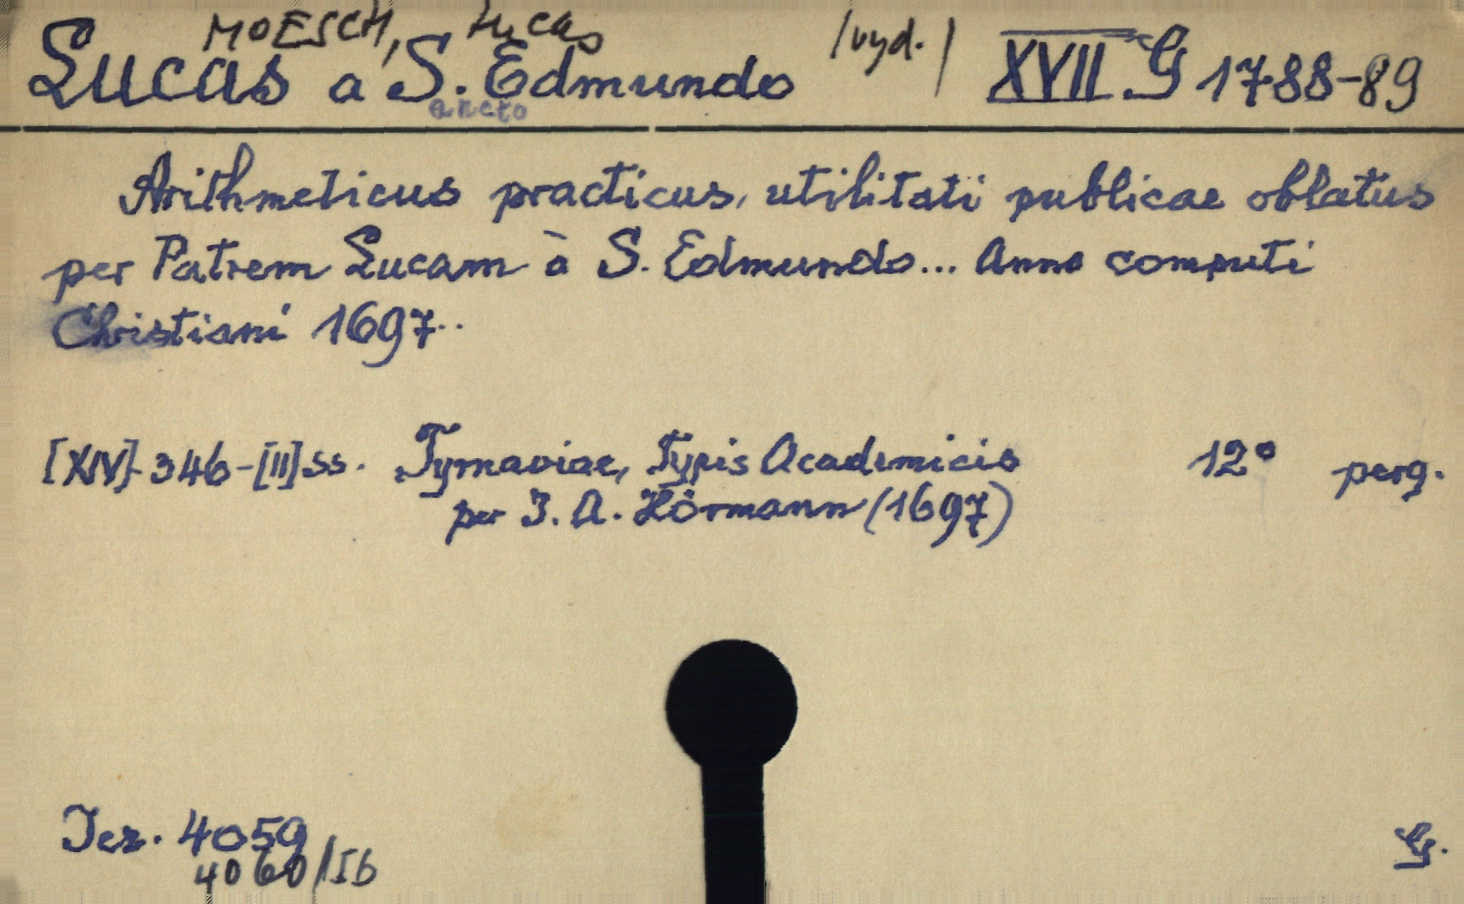 MOESCH, Lucas /vyd./
Lucas a S. Edmundo XVII G 1788-89
ancto
Arithmeticus practicus, utilitati publicae oblatus
per Patrem Lucam à S. Edmundo... Anno computi
Christiani 1697..
[XIV]-346-[II] ss. Tyrnaviae, Typis Academicis 12° perg.
per J. A. Hörmann (1697)
Jez. 4059
4060/Ib